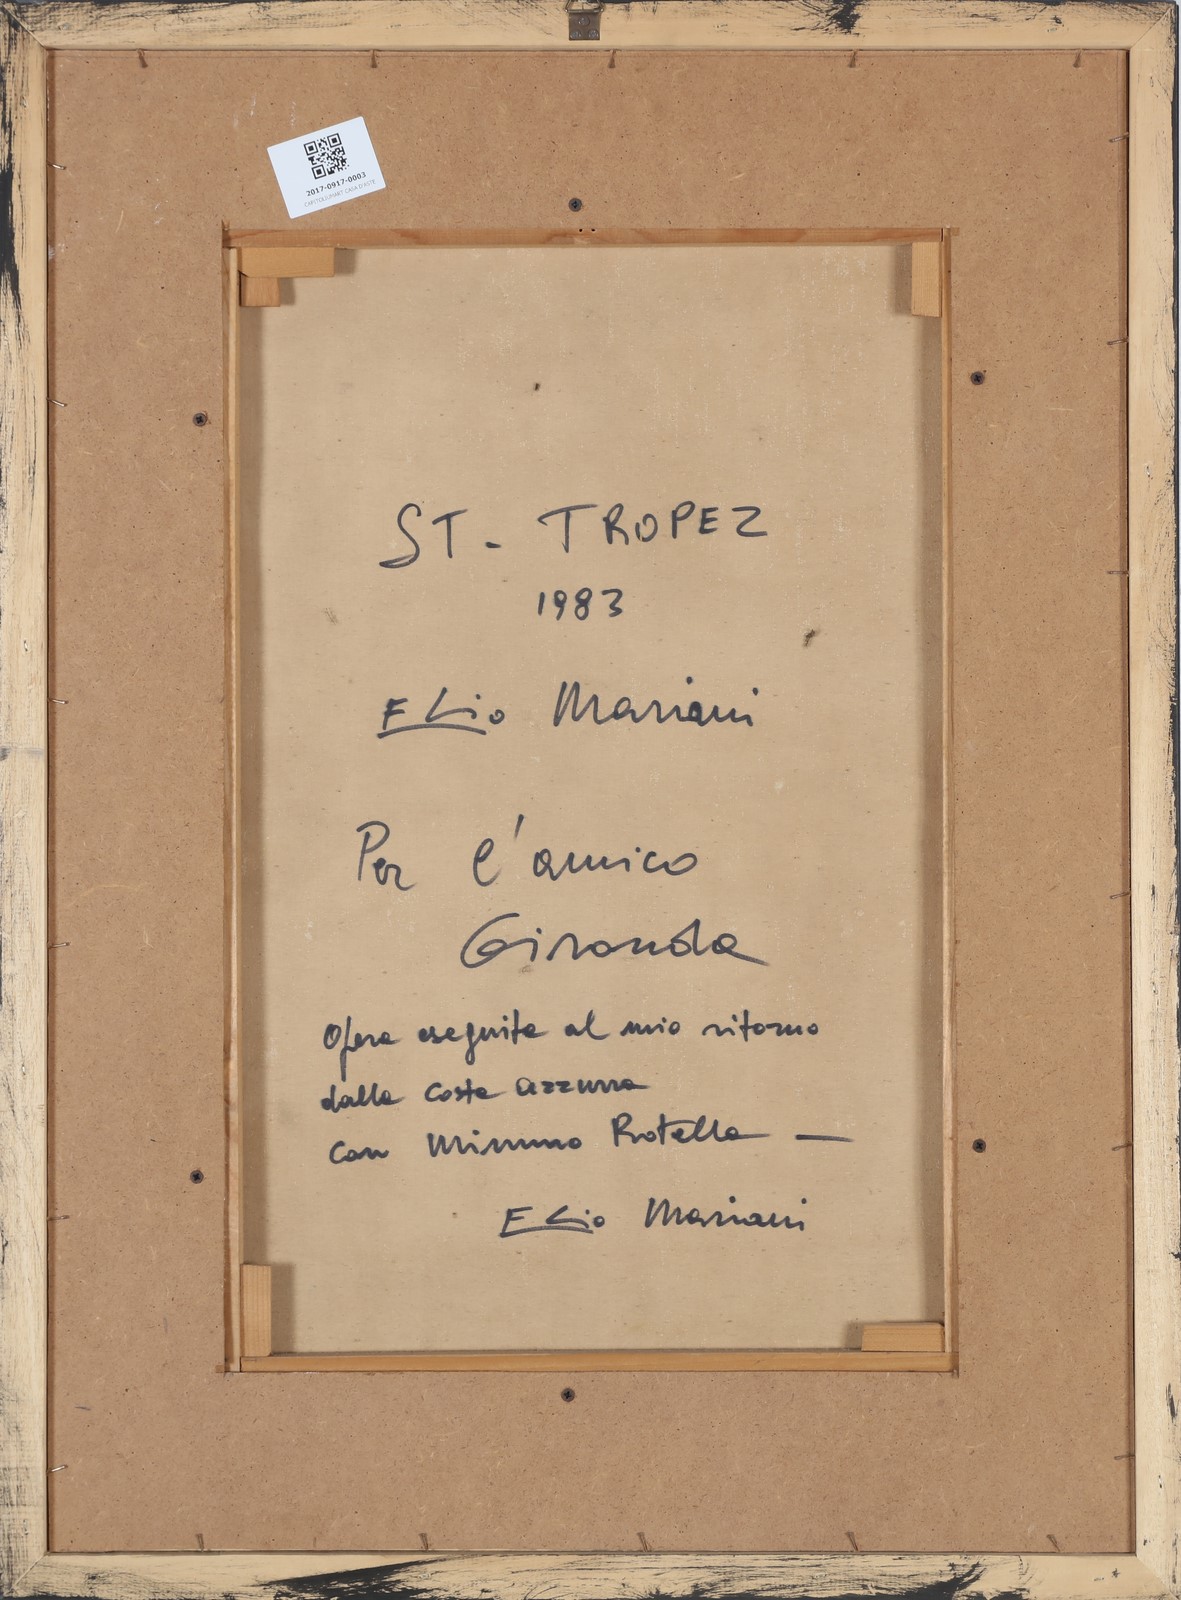 2017-0917-0003
CAPITOLIUMART CASA D'ASTE
ST. TROPEZ
1983
ELio Mariani
Per l'amico
Gironda
Opera eseguita al mio ritorno
dalla Costa azzurra
con Mimmo Rotella —
ELio Mariani